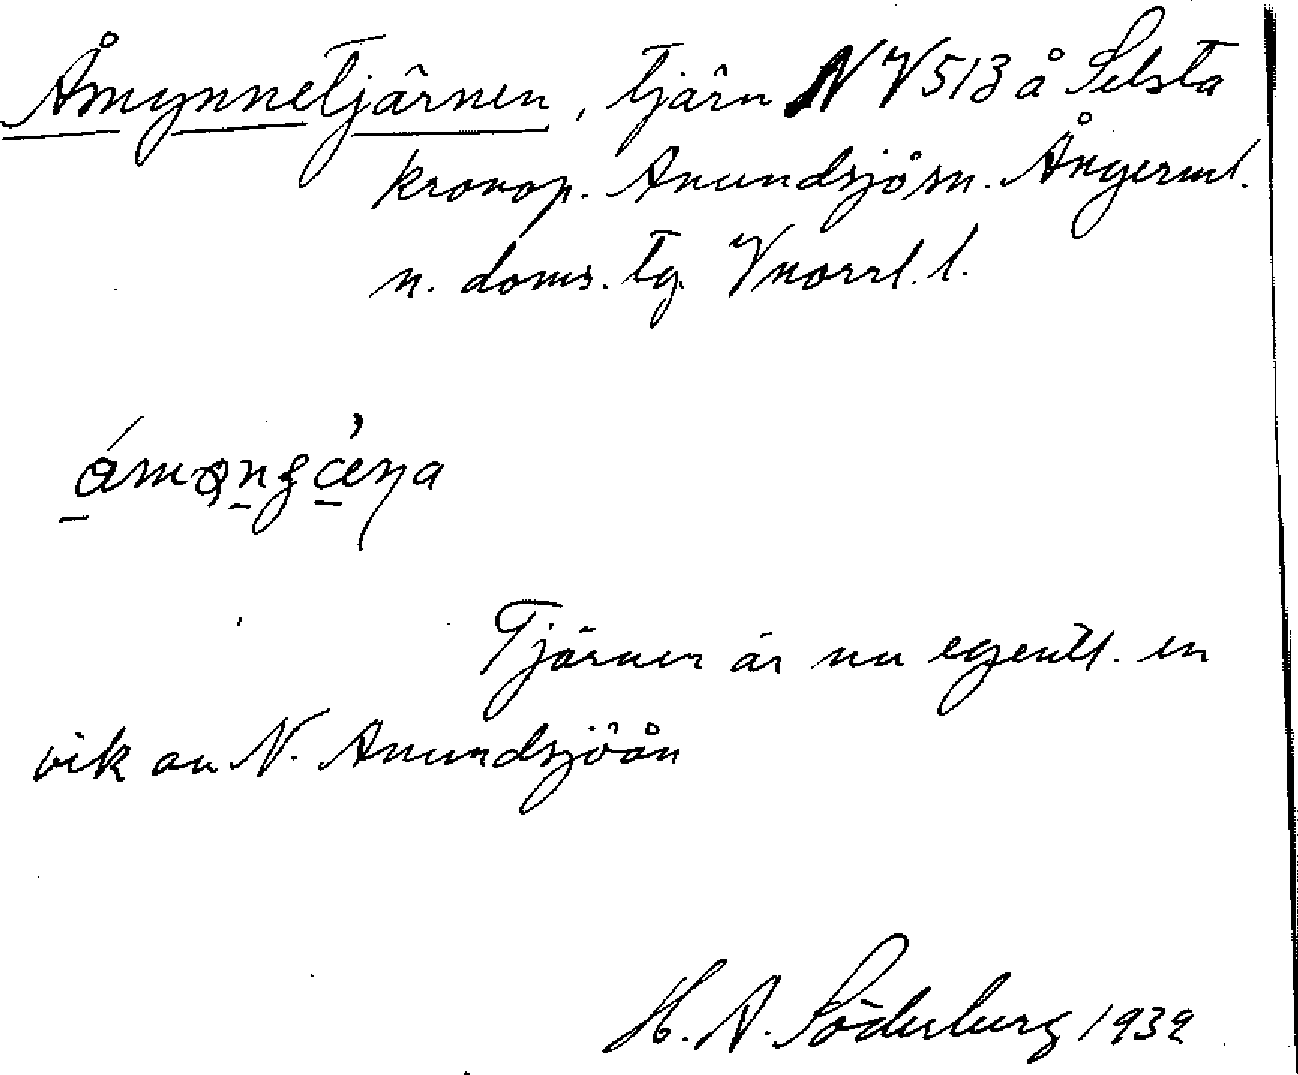 Åmynnetjärnen, tjärn NV513 å Selsta
kronop. Anundsjö sn. Ångerml.
n. doms. tg. Vnorrl. l.
Tjärnen är nu egentl. en
vik av N. Anundsjöån
H. A. Söderberg 1939